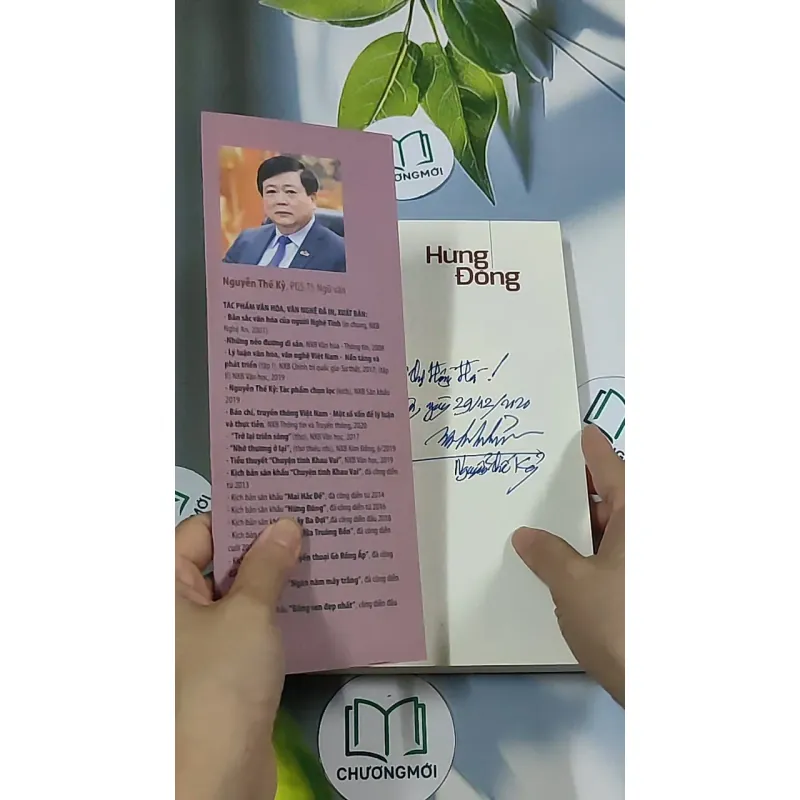 CHƯƠNGMỚI
Nguyễn Thế Kỷ, PGS.TS Ngữ văn
TÁC PHẨM VĂN HÓA, VĂN NGHỆ ĐÃ IN, XUẤT BẢN:
- Bản sắc văn hóa của người Nghệ Tĩnh (in chung, NXB
Nghệ An, 2001)
- Những nẻo đường di sản, NXB Văn hóa - Thông tin, 2009
- Lý luận văn hóa, văn nghệ Việt Nam - Nền tảng và
phát triển (tập I), NXB Chính trị quốc gia Sự thật, 2017; (tập
NXB Văn học, 2019
- Nguyễn Thế Kỷ: Tác phẩm chọn lọc NXB Sân khấu
2019
- Báo chí, truyền thông Việt Nam - Một số vấn đề lý luận
và thực tiễn, NXB Thông tin và Truyền thông, 2020
- "Trở lại triền sông" (thơ), NXB Văn học, 2017
- "Nhớ thương ở lại", (thơ thiếu nhi), NXB Kim Đồng, 6/2019
- Tiểu thuyết "Chuyện tình Khau Vai", NXB Văn học, 2019
- Kịch bản sân khấu "Chuyện tình Khau Vai", đã công diễn
từ 2013
- Kịch bản sân khấu "Mai Hắc Đế", đã công diễn từ 2014
- Kịch bản sân khấu "Hừng Đông", đã công diễn từ 2016
- Kịch bản sân khấu Ba Đợi", đã công diễn đầu 2018
- Kịch bản Trường Bồn", đã công diễn
cuối
thoại Gò Rồng Ấp", đã công
"Ngàn năm mây trắng", đã công diễn
"Bông sen đẹp nhất", công diễn đầu
Hừng
Đông
ngày 29/12/2020
Nguyễn Thế Kỷ
CHƯƠNGMỚI